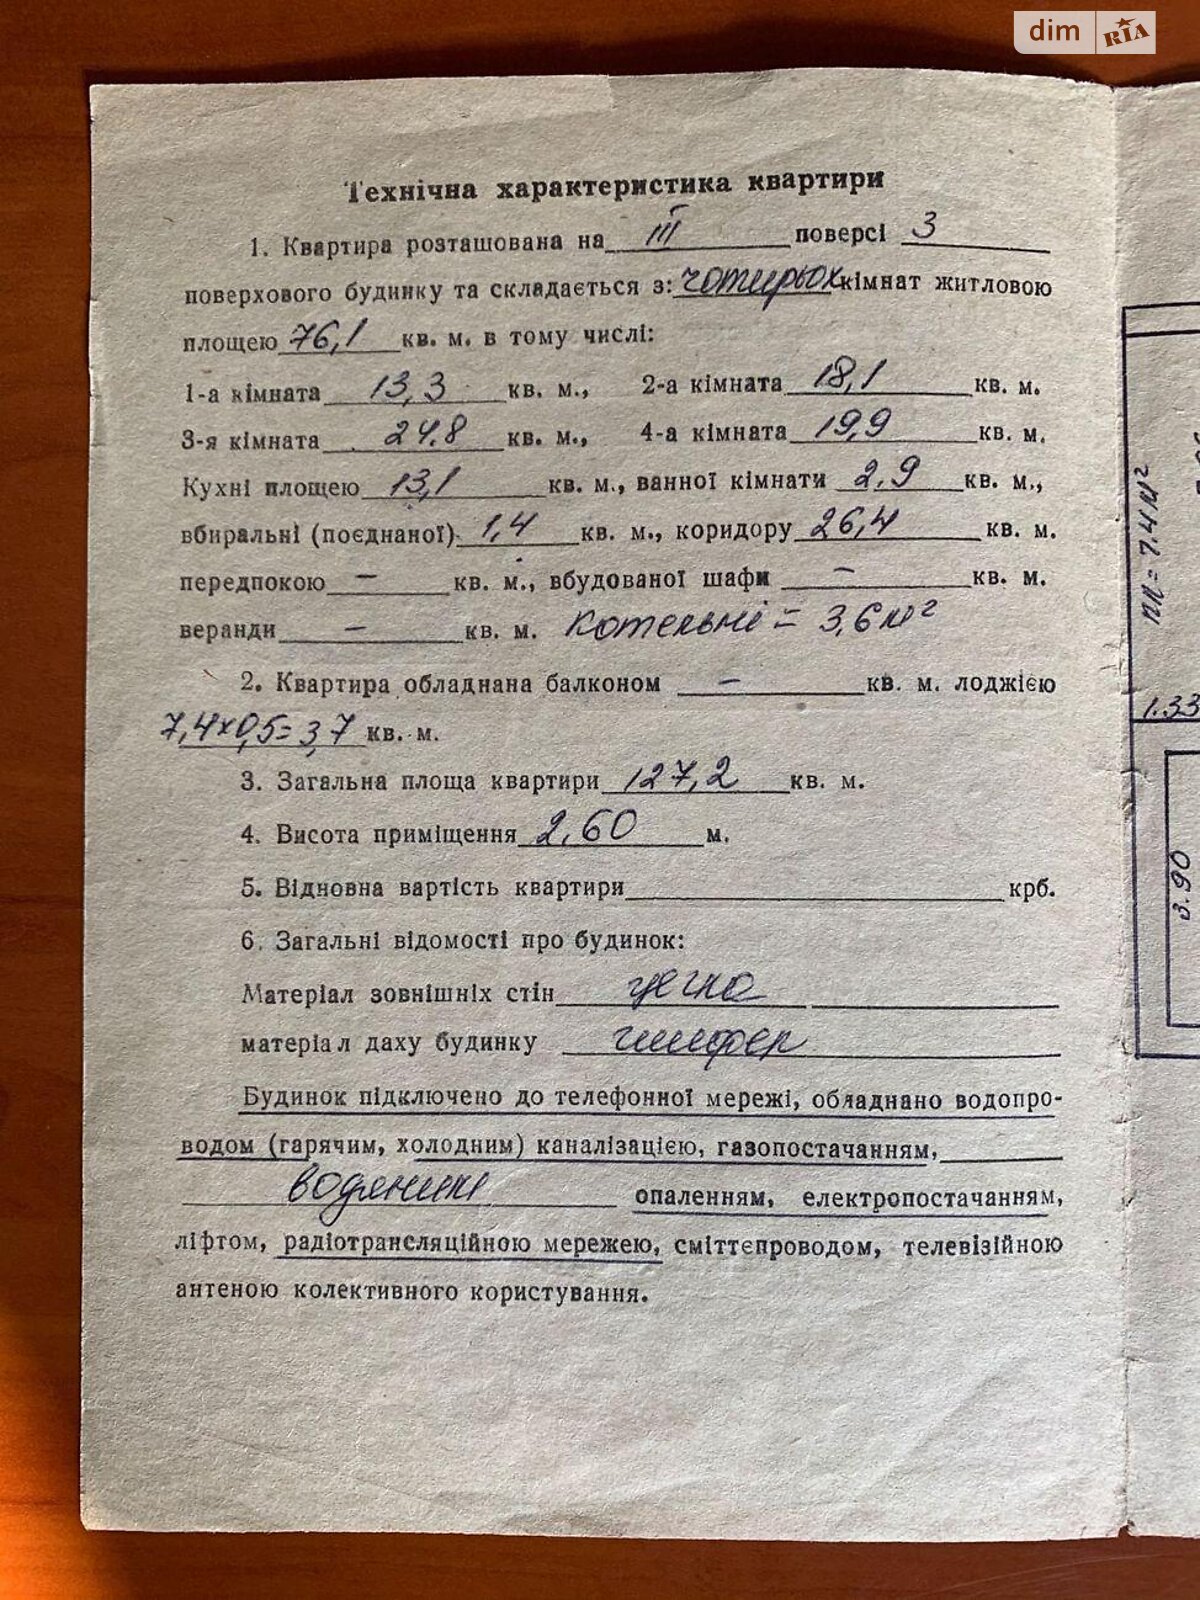 dim RIA
Технічна характеристика квартири
1. Квартира розташована на III поверсі 3
поверхового будинку та складається з: чотирьох кімнат житловою
площею 76,1 кв. м. в тому числі:
1-а кімната 13,3 кв. м., 2-а кімната 18,1 кв. м.
3-я кімната 24.8 кв. м., 4-а кімната 19,9 кв. м.
Кухні площею 13,1 кв. м., ванної кімнати 2.9 кв. м.,
вбиральні (поєднаної) 1,4 кв. м., коридору 26,4 кв. м.
передпокою – кв. м., вбудованої шафи – кв. м.
веранди – кв. м. Котельні = 3,6 м²
2. Квартира обладнана балконом – кв. м. лоджією
7,4×0,5= 3,7 кв. м.
3. Загальна площа квартири 127,2 кв. м.
4. Висота приміщення 2,60 м.
5. Відновна вартість квартири крб.
6. Загальні відомості про будинок:
Матеріал зовнішніх стін цегла
матеріал даху будинку шифер
Будинок підключено до телефонної мережі, обладнано водопро-
водом (гарячим, холодним) каналізацією, газопостачанням,
водяним опаленням, електропостачанням,
ліфтом, радіотрансляційною мережею, сміттєпроводом, телевізійною
антеною колективного користування.
пл = 7.4 м²
1.33
3.90